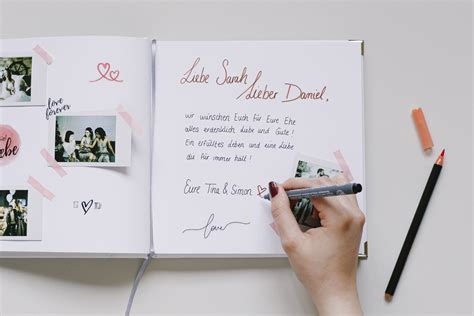 love
forever
Liebe
S D
Liebe Sarah
Lieber Daniel,
wir wünschen Euch für Eure Ehe
alles erdenklich Liebe und Gute!
Ein erfülltes Leben und eine Liebe
die für immer hält!
Eure Tina & Simon
love